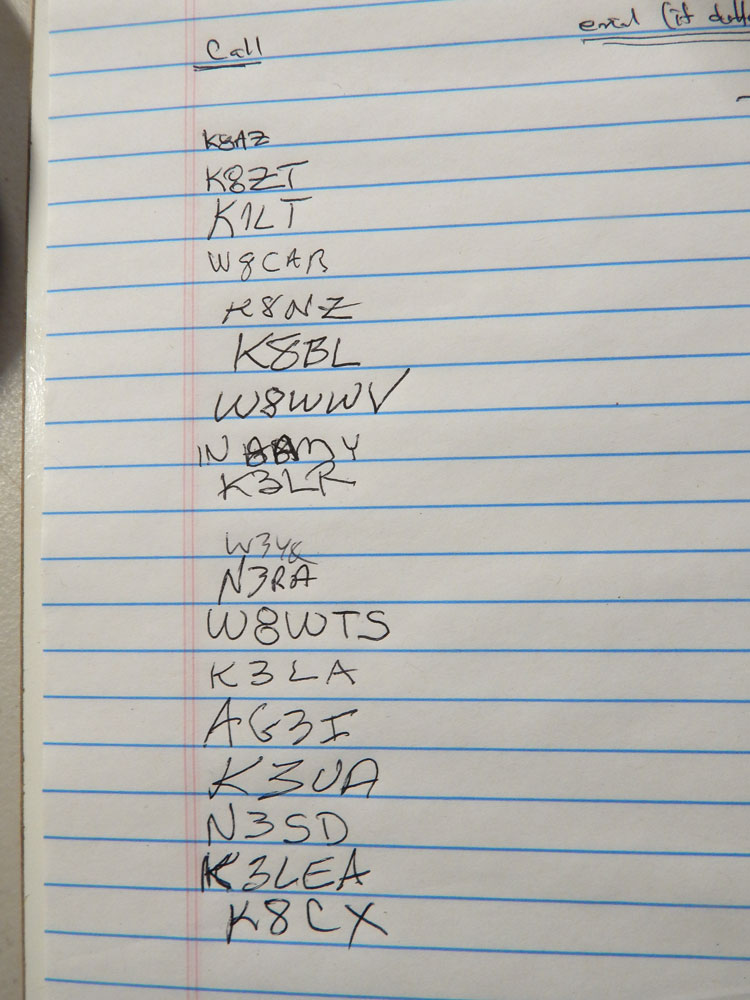 Call
email (if
K8AZ
K8ZT
K1LT
W8CAR
K8NZ
K8BL
W8WWV
IN
K3LR
N3RA
W8WTS
K3LA
AG3I
K3UA
N3SD
K3LEA
K8CX